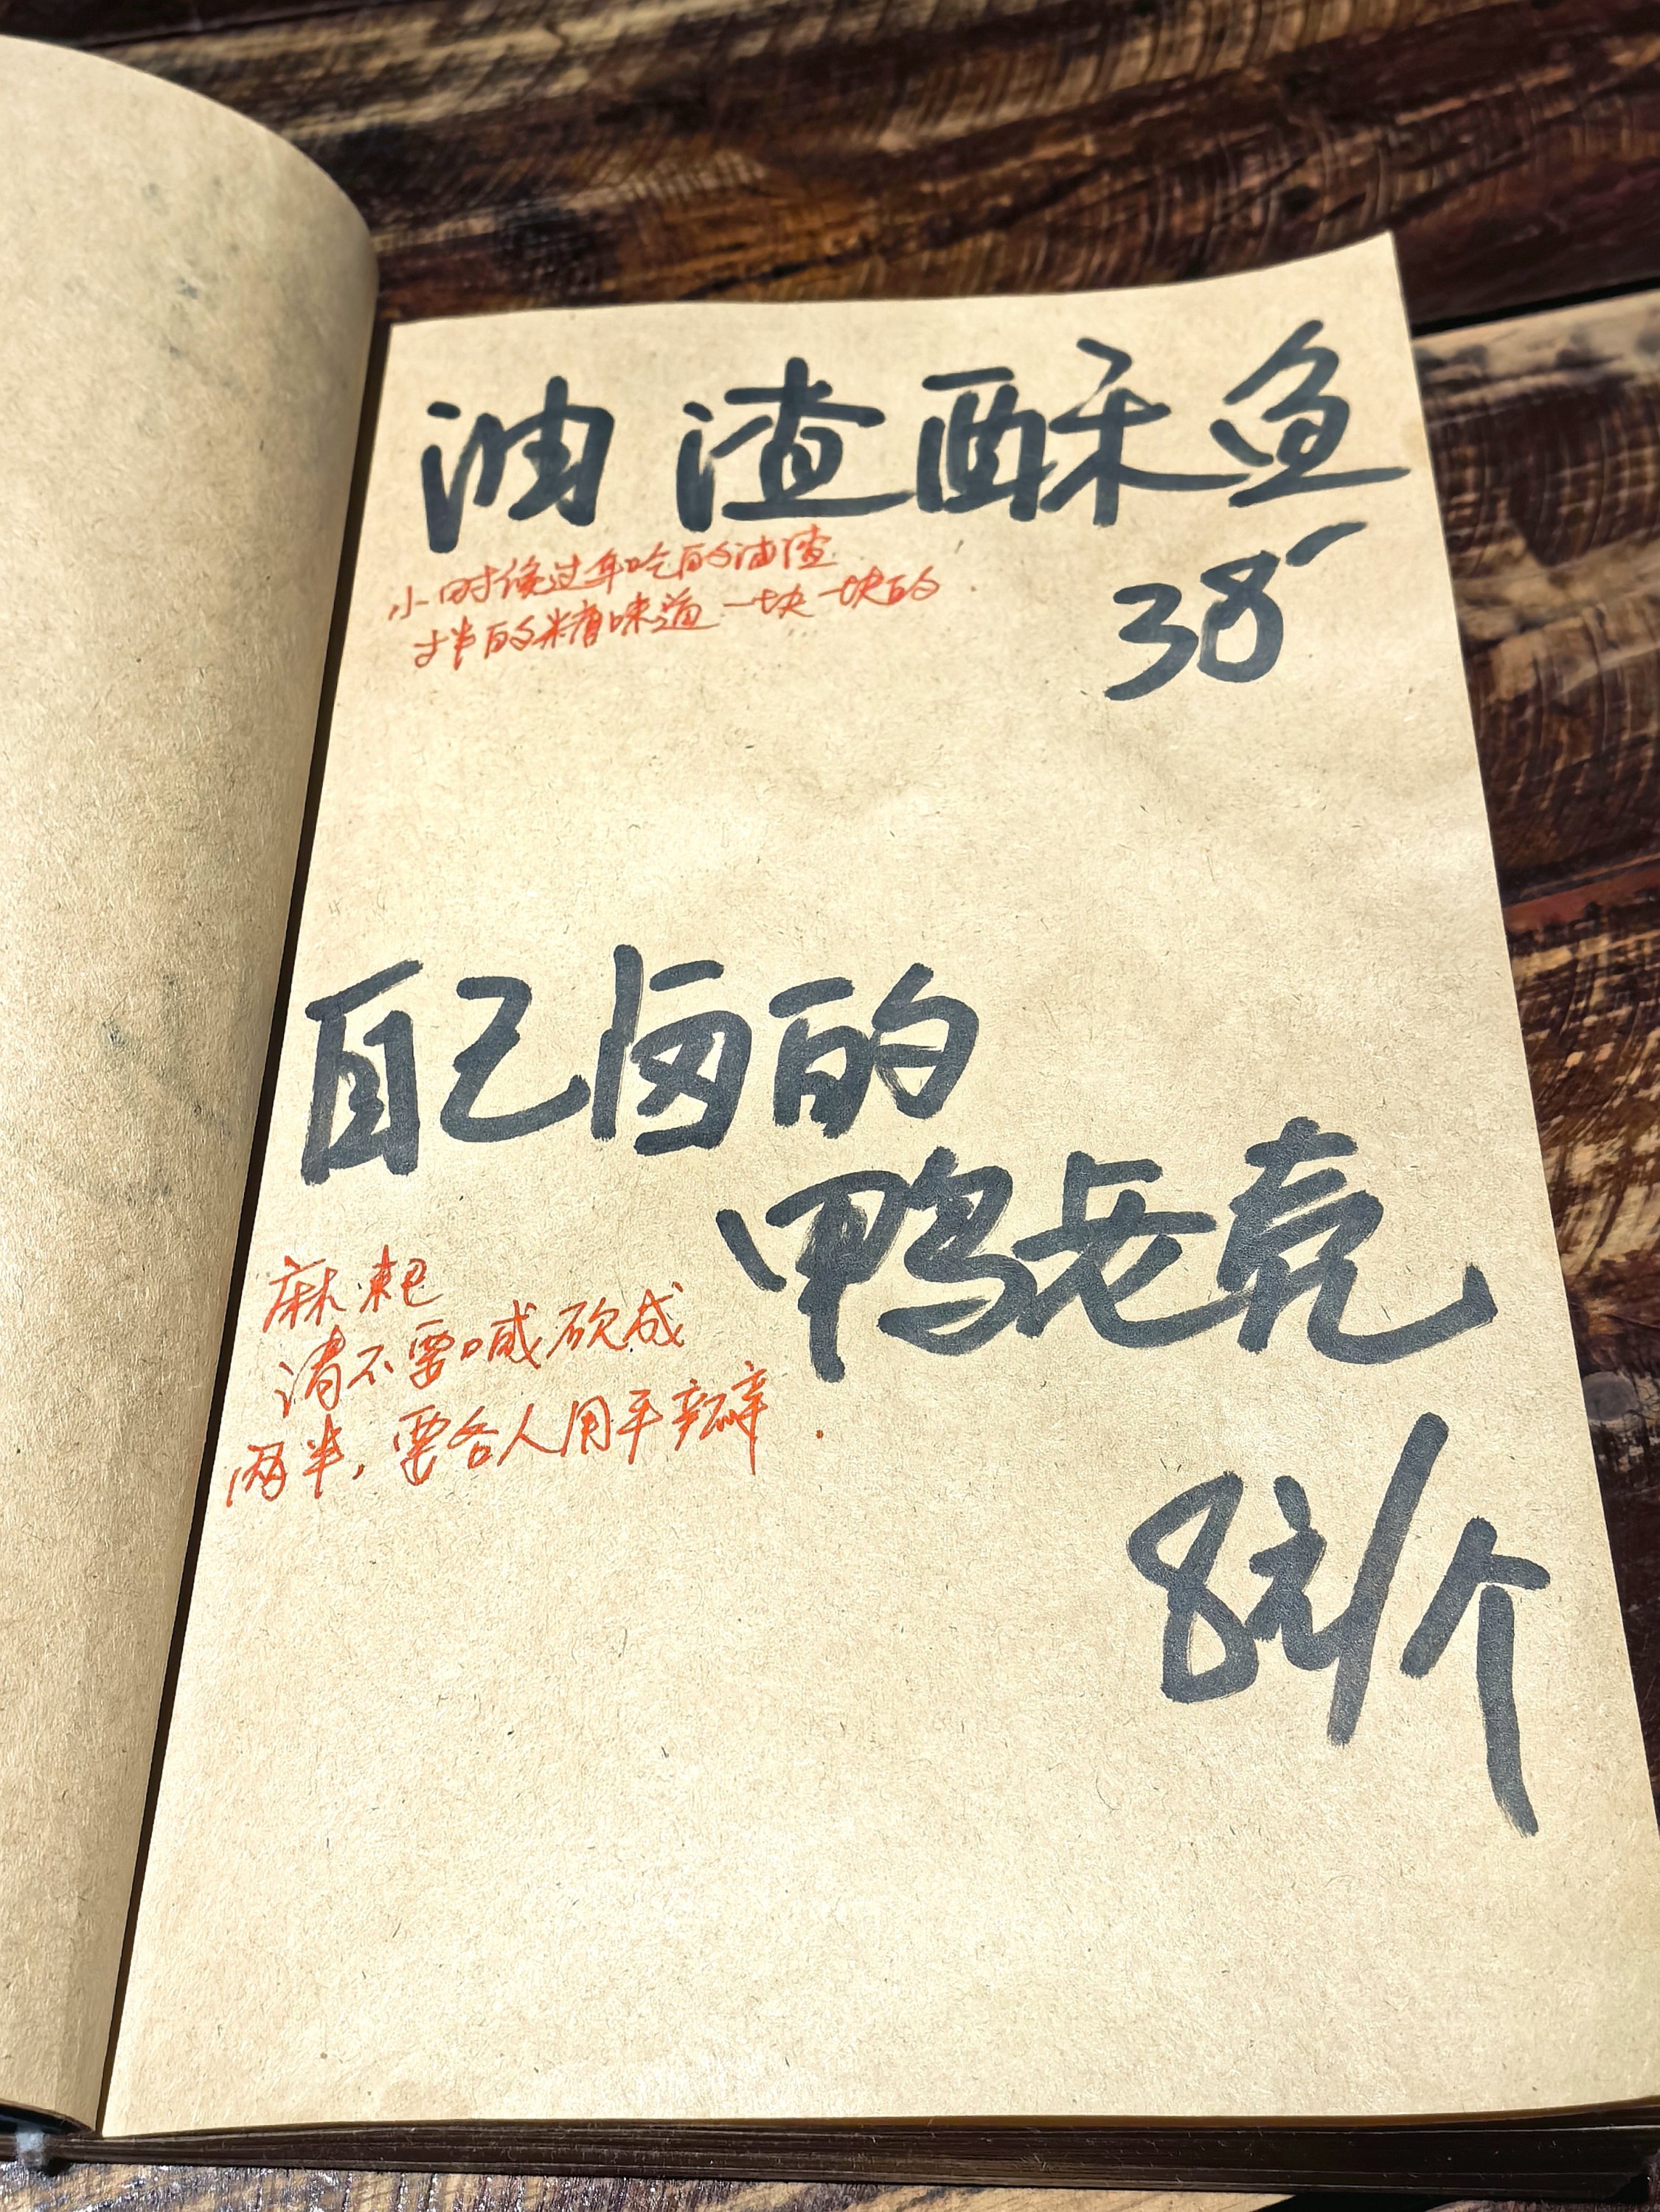 油渣酥鱼
小时候过年吃的油渣
拌的糖味道 一块一块的
38
自己卤的
鸭老壳
麻 耙
请不要喊砍成
两半,要各人用手瓣.
8元/个